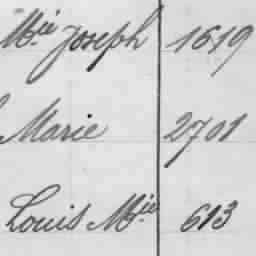 Mie Joseph 1619
Marie 2701
Louis Mie 613